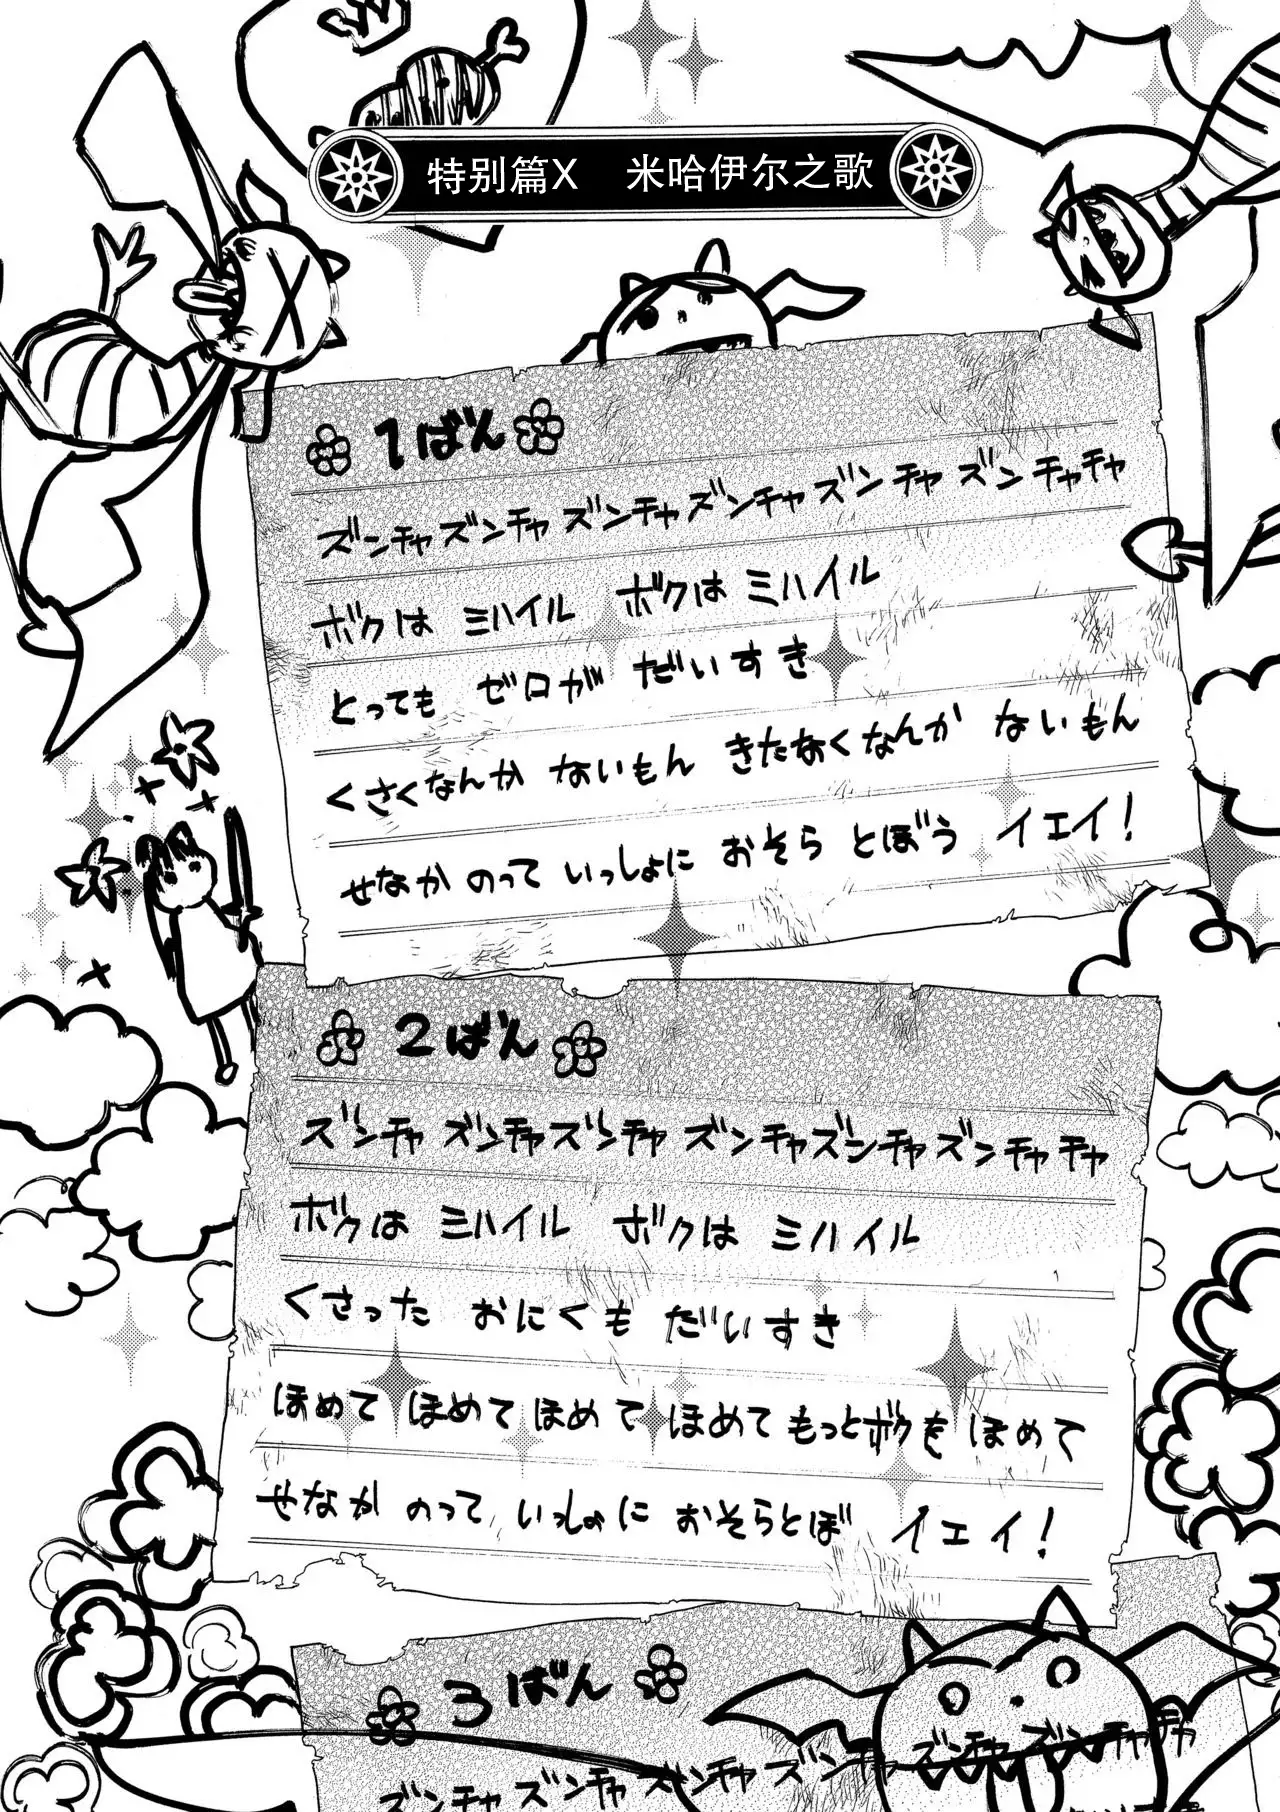 特别篇X 米哈伊尔之歌
1ばん
ズンチャズンチャズンチャズンチャズンチャズンチャチャ
ボクは ミハイル ボクは ミハイル
とっても ゼロが だいすき
くさくなんか ないもん きたなくなんか ないもん
せなか のって いっしょに おそら とぼう イエイ!
2ばん
ズンチャ ズンチャズンチャ ズンチャズンチャズンチャチャ
ボクは ミハイル ボクは ミハイル
くさった おにくも だいすき
ほめて ほめてほめて ほめて もっとボクを ほめて
せなか のって いっしょに おそらとぼ イエイ!
3ばん
ズンチャズンチャズンチャズンチャズンチャズンチャチャ